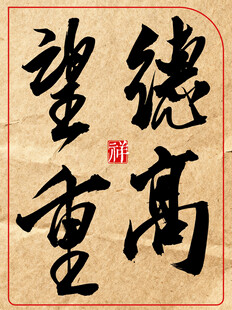 德高
望重
祥